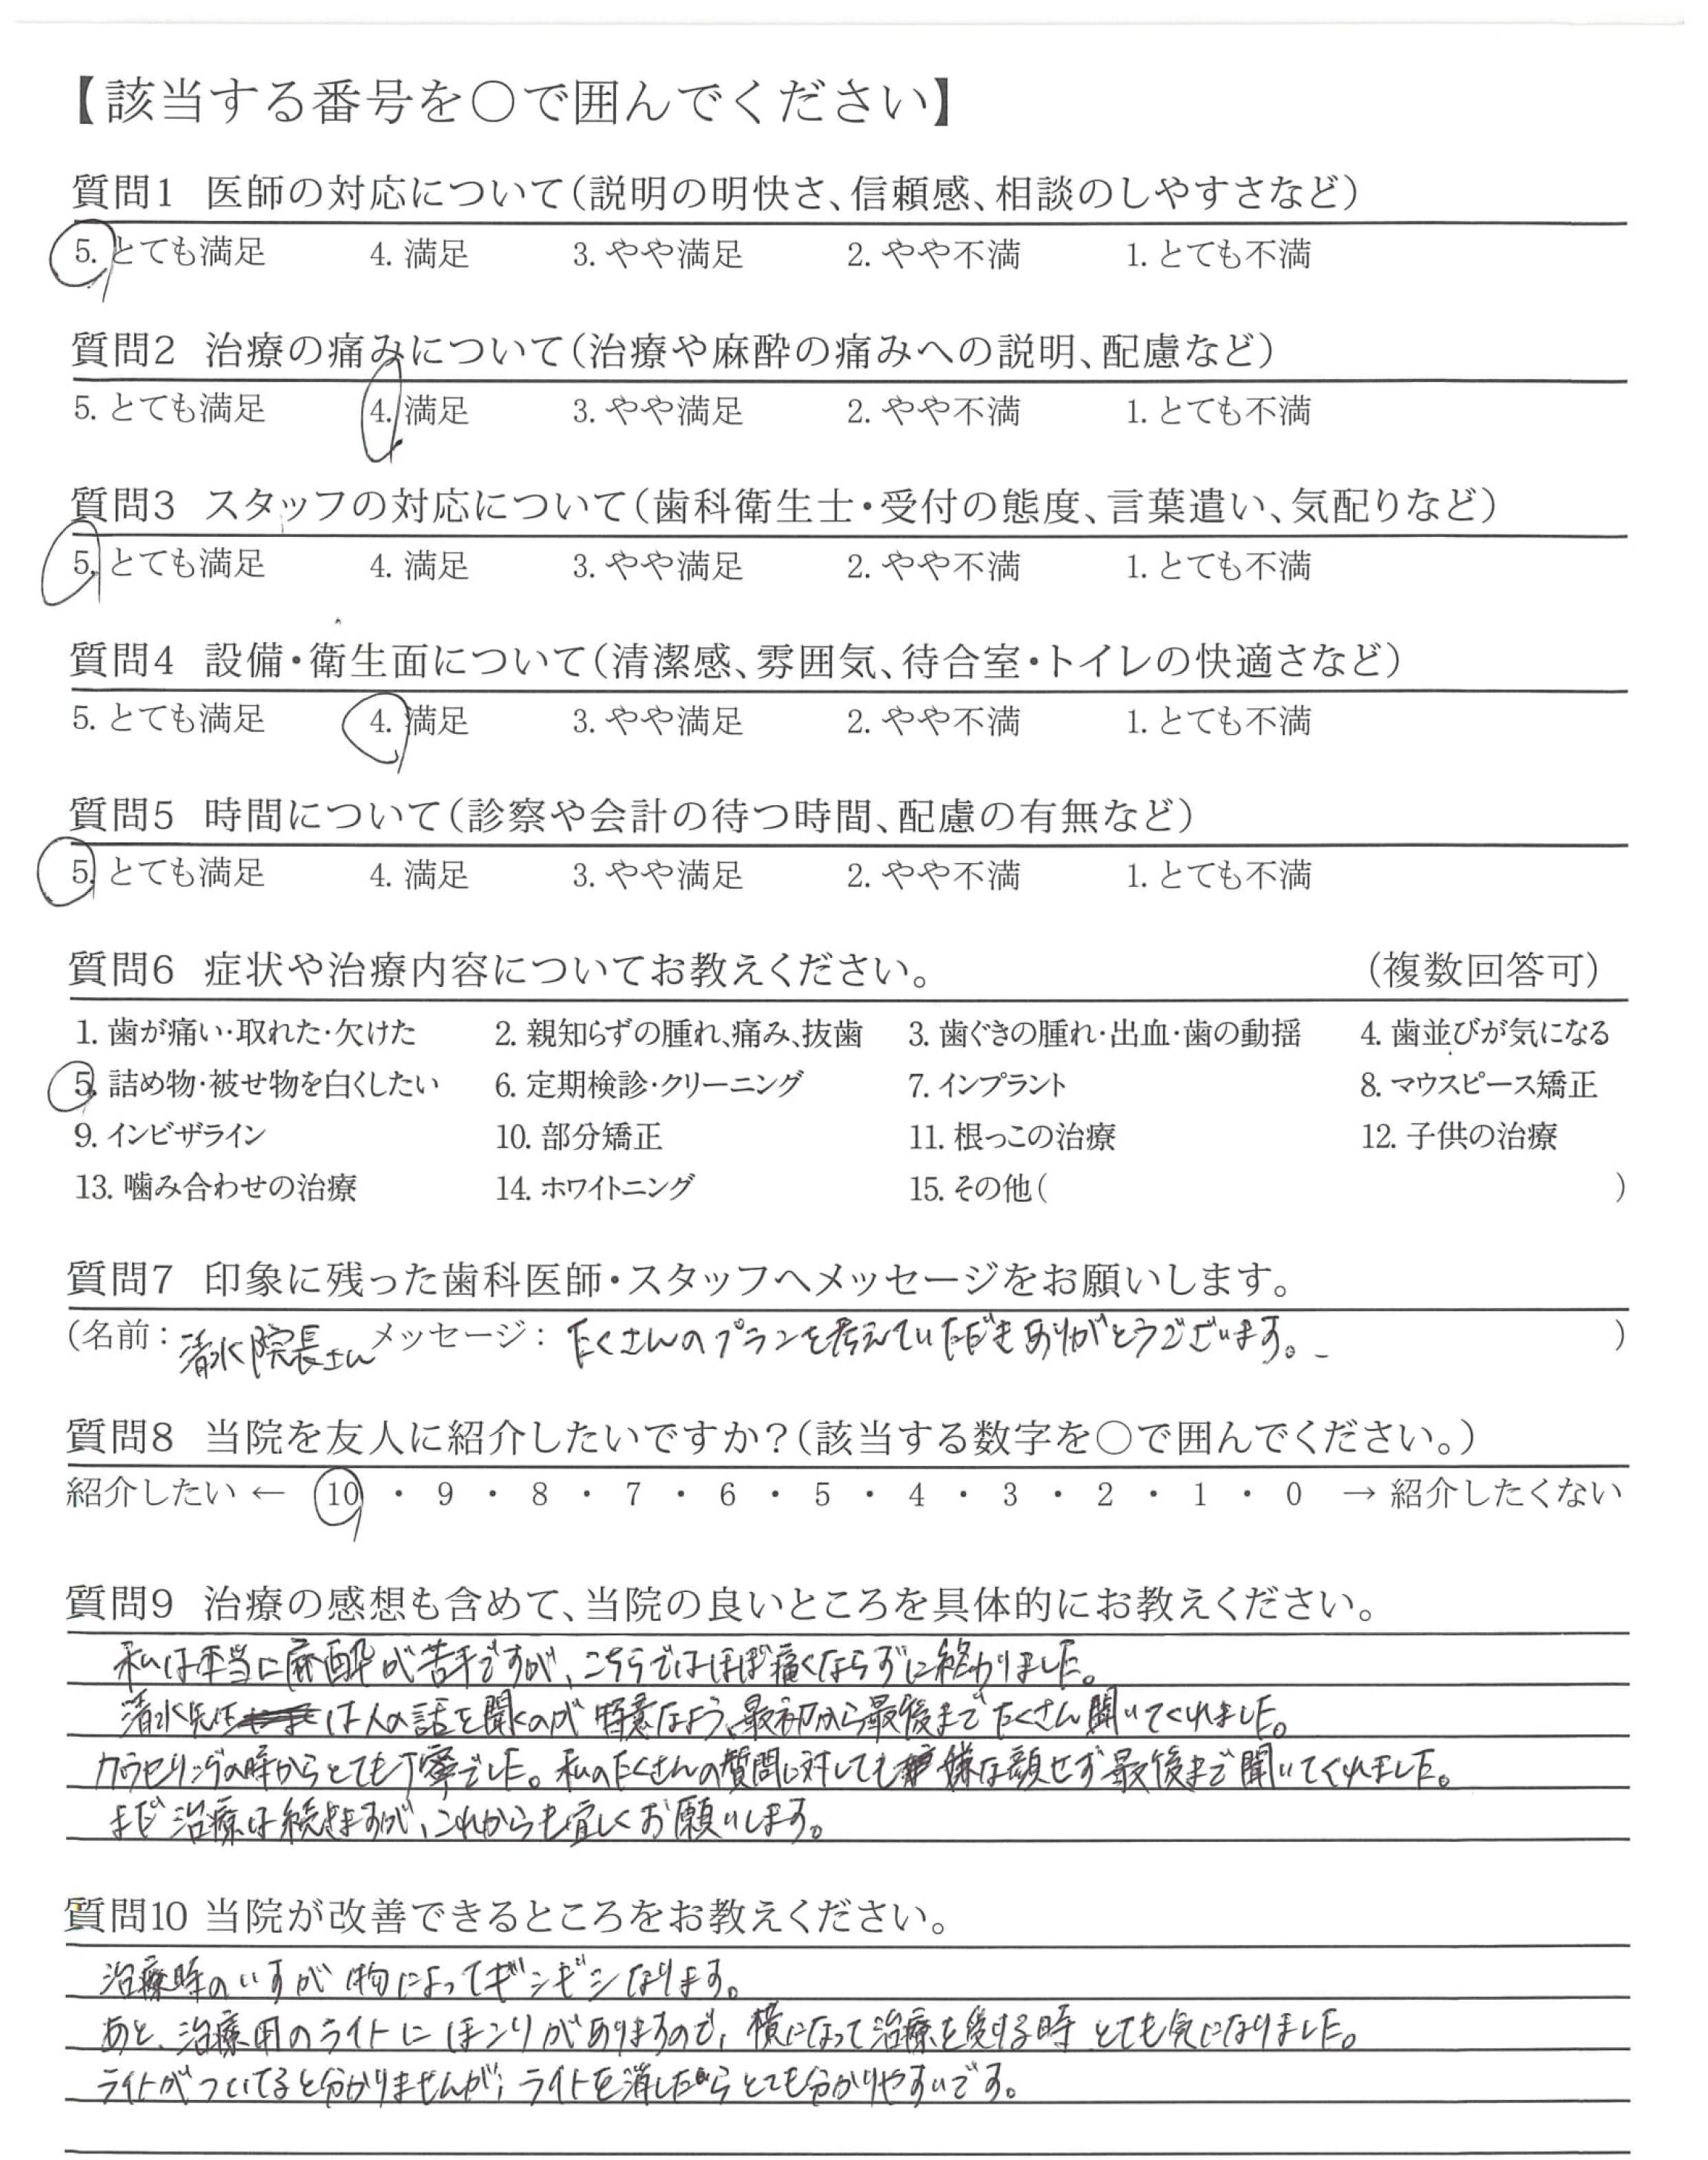 【該当する番号を〇で囲んでください】
質問1 医師の対応について（説明の明快さ、信頼感、相談のしやすさなど）
5. とても満足 4. 満足 3. やや満足 2. やや不満 1. とても不満
質問2 治療の痛みについて（治療や麻酔の痛みへの説明、配慮など）
5. とても満足 4. 満足 3. やや満足 2. やや不満 1. とても不満
質問3 スタッフの対応について（歯科衛生士・受付の態度、言葉遣い、気配りなど）
5. とても満足 4. 満足 3. やや満足 2. やや不満 1. とても不満
質問4 設備・衛生面について（清潔感、雰囲気、待合室・トイレの快適さなど）
5. とても満足 4. 満足 3. やや満足 2. やや不満 1. とても不満
質問5 時間について（診察や会計の待つ時間、配慮の有無など）
5. とても満足 4. 満足 3. やや満足 2. やや不満 1. とても不満
質問6 症状や治療内容についてお教えください。 （複数回答可）
1. 歯が痛い・取れた・欠けた 2. 親知らずの腫れ、痛み、抜歯 3. 歯ぐきの腫れ・出血・歯の動揺 4. 歯並びが気になる
5. 詰め物・被せ物を白くしたい 6. 定期検診・クリーニング 7. インプラント 8. マウスピース矯正
9. インビザライン 10. 部分矯正 11. 根っこの治療 12. 子供の治療
13. 噛み合わせの治療 14. ホワイトニング 15. その他（ ）
質問7 印象に残った歯科医師・スタッフへメッセージをお願いします。
（名前：清水院長さん メッセージ：たくさんのプランを考えていただきありがとうございます。 ）
質問8 当院を友人に紹介したいですか？（該当する数字を〇で囲んでください。）
紹介したい ← 10 ・ 9 ・ 8 ・ 7 ・ 6 ・ 5 ・ 4 ・ 3 ・ 2 ・ 1 ・ 0 → 紹介したくない
質問9 治療の感想も含めて、当院の良いところを具体的にお教えください。
私は本当に麻酔が苦手ですが、こちらではほぼ痛くならずに終わりました。
清水先生は人の話を聞くのが得意なよう、最初から最後までたくさん聞いてくれました。
カウンセリングの時からとても丁寧でした。私のたくさんの質問に対しても嫌な顔せず最後まで聞いてくれました。
まだ治療は続きますが、これからも宜しくお願いします。
質問10 当院が改善できるところをお教えください。
治療時のいすが物によってギシギシなります。
あと、治療用のライトにほこりがありますので、横になって治療を受ける時とても気になりました。
ライトがついてると分かりませんが、ライトを消したらとても分かりやすいです。